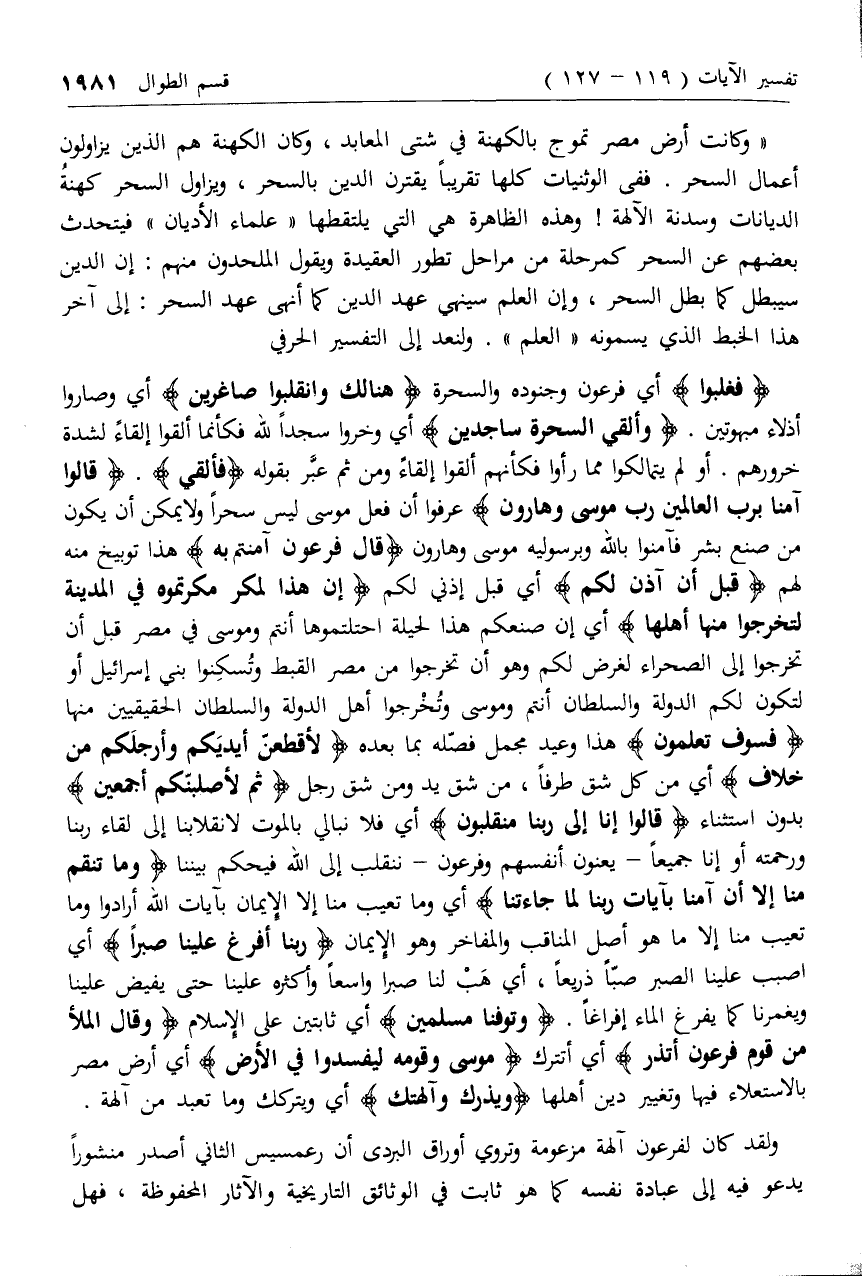 تفسير الآيات ( ١١٩ – ١٢٧ ) قسم الطوال ١٩٨١
« وكانت أرض مصر تموج بالكهنة في شتى المعابد ، وكان الكهنة هم الذين يزاولون
أعمال السحر . ففى الوثنيات كلها تقريباً يقترن الدين بالسحر ، ويزاول السحر كهنةُ
الديانات وسدنة الآلهة ! وهذه الظاهرة هي التي يلتقطها « علماء الأديان » فيتحدث
بعضهم عن السحر كمرحلة من مراحل تطور العقيدة ويقول الملحدون منهم : إن الدين
سيبطل كما بطل السحر ، وإن العلم سينهي عهد الدين كما أنهى عهد السحر : إلى آخر
هذا الخبط الذي يسمونه « العلم » . ولنعد إلى التفسير الحرفي
﴿ فغلبوا ﴾ أي فرعون وجنوده والسحرة ﴿ هنالك وانقلبوا صاغرين ﴾ أي وصاروا
أذلاء مبهوتين . ﴿ وألقي السحرة ساجدين ﴾ أي وخروا سجداً لله فكأنما ألقوا إلقاءً لشدة
خرورهم . أو لم يتمالكوا مما رأوا فكأنهم ألقوا إلقاءً ومن ثم عبَّر بقوله ﴿فألقي ﴾ . ﴿ قالوا
آمنا برب العالمين رب موسى وهارون ﴾ عرفوا أن فعل موسى ليس سحراً ولايمكن أن يكون
من صنع بشر فآمنوا بالله وبرسوليه موسى وهارون ﴿قال فرعون آمنتم به ﴾ هذا توبيخ منه
لهم ﴿ قبل أن آذن لكم ﴾ أي قبل إذني لكم ﴿ إن هذا لمكر مكرتموه في المدينة
لتخرجوا منها أهلها ﴾ أي إن صنعكم هذا لحيلة احتلتموها أنتم وموسى في مصر قبل أن
تخرجوا إلى الصحراء لغرض لكم وهو أن تخرجوا من مصر القبط وتُسكِنوا بني إسرائيل أو
لتكون لكم الدولة والسلطان أنتم وموسى وتُخْرجوا أهل الدولة والسلطان الحقيقيين منها
﴿ فسوف تعلمون ﴾ هذا وعيد مجمل فصّله بما بعده ﴿ لأقطعنّ أيديَكم وأرجلَكم من
خلاف ﴾ أي من كل شق طرفاً ، من شق يد ومن شق رجل ﴿ ثم لأصلبنّكم أجمعين ﴾
بدون استثناء ﴿ قالوا إنا إلى ربنا منقلبون ﴾ أي فلا نبالي بالموت لانقلابنا إلى لقاء ربنا
ورحمته أو إنا جميعاً – يعنون أنفسهم وفرعون – ننقلب إلى الله فيحكم بيننا ﴿ وما تنقم
منا إلا أن آمنا بآيات ربنا لما جاءتنا ﴾ أي وما تعيب منا إلا الإيمان بآيات الله أرادوا وما
تعيب منا إلا ما هو أصل المناقب والمفاخر وهو الإيمان ﴿ ربنا أفرغ علينا صبراً ﴾ أي
اصبب علينا الصبر صبّاً ذريعاً ، أي هَبْ لنا صبرا واسعاً وأكثره علينا حتى يفيض علينا
ويغمرنا كما يفرغ الماء إفراغاً . ﴿ وتوفنا مسلمين ﴾ أي ثابتين على الإسلام ﴿ وقال الملأ
من قوم فرعون أتذر ﴾ أي أتترك ﴿ موسى وقومه ليفسدوا في الأرض ﴾ أي أرض مصر
بالاستعلاء فيها وتغيير دين أهلها ﴿ويذرك وآلهتك ﴾ أي ويتركك وما تعبد من آلهة .
ولقد كان لفرعون آلهة مزعومة وتروي أوراق البردى أن رعمسيس الثاني أصدر منشوراً
يدعو فيه إلى عبادة نفسه كما هو ثابت في الوثائق التاريخية والآثار المحفوظة ، فهل